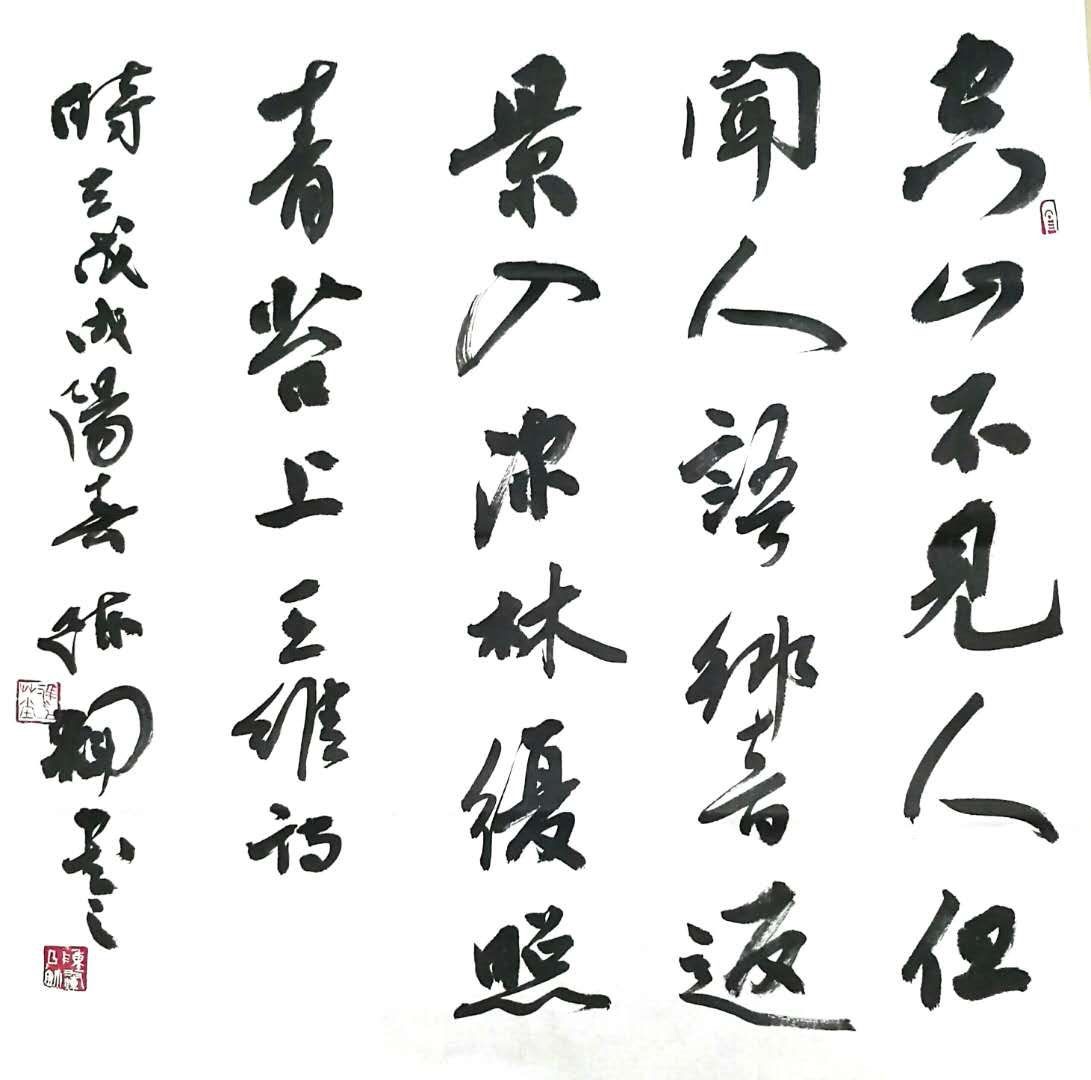 空山不見人但
聞人語響返
景入深林復照
青苔上 王維詩
時在戊戌陽春